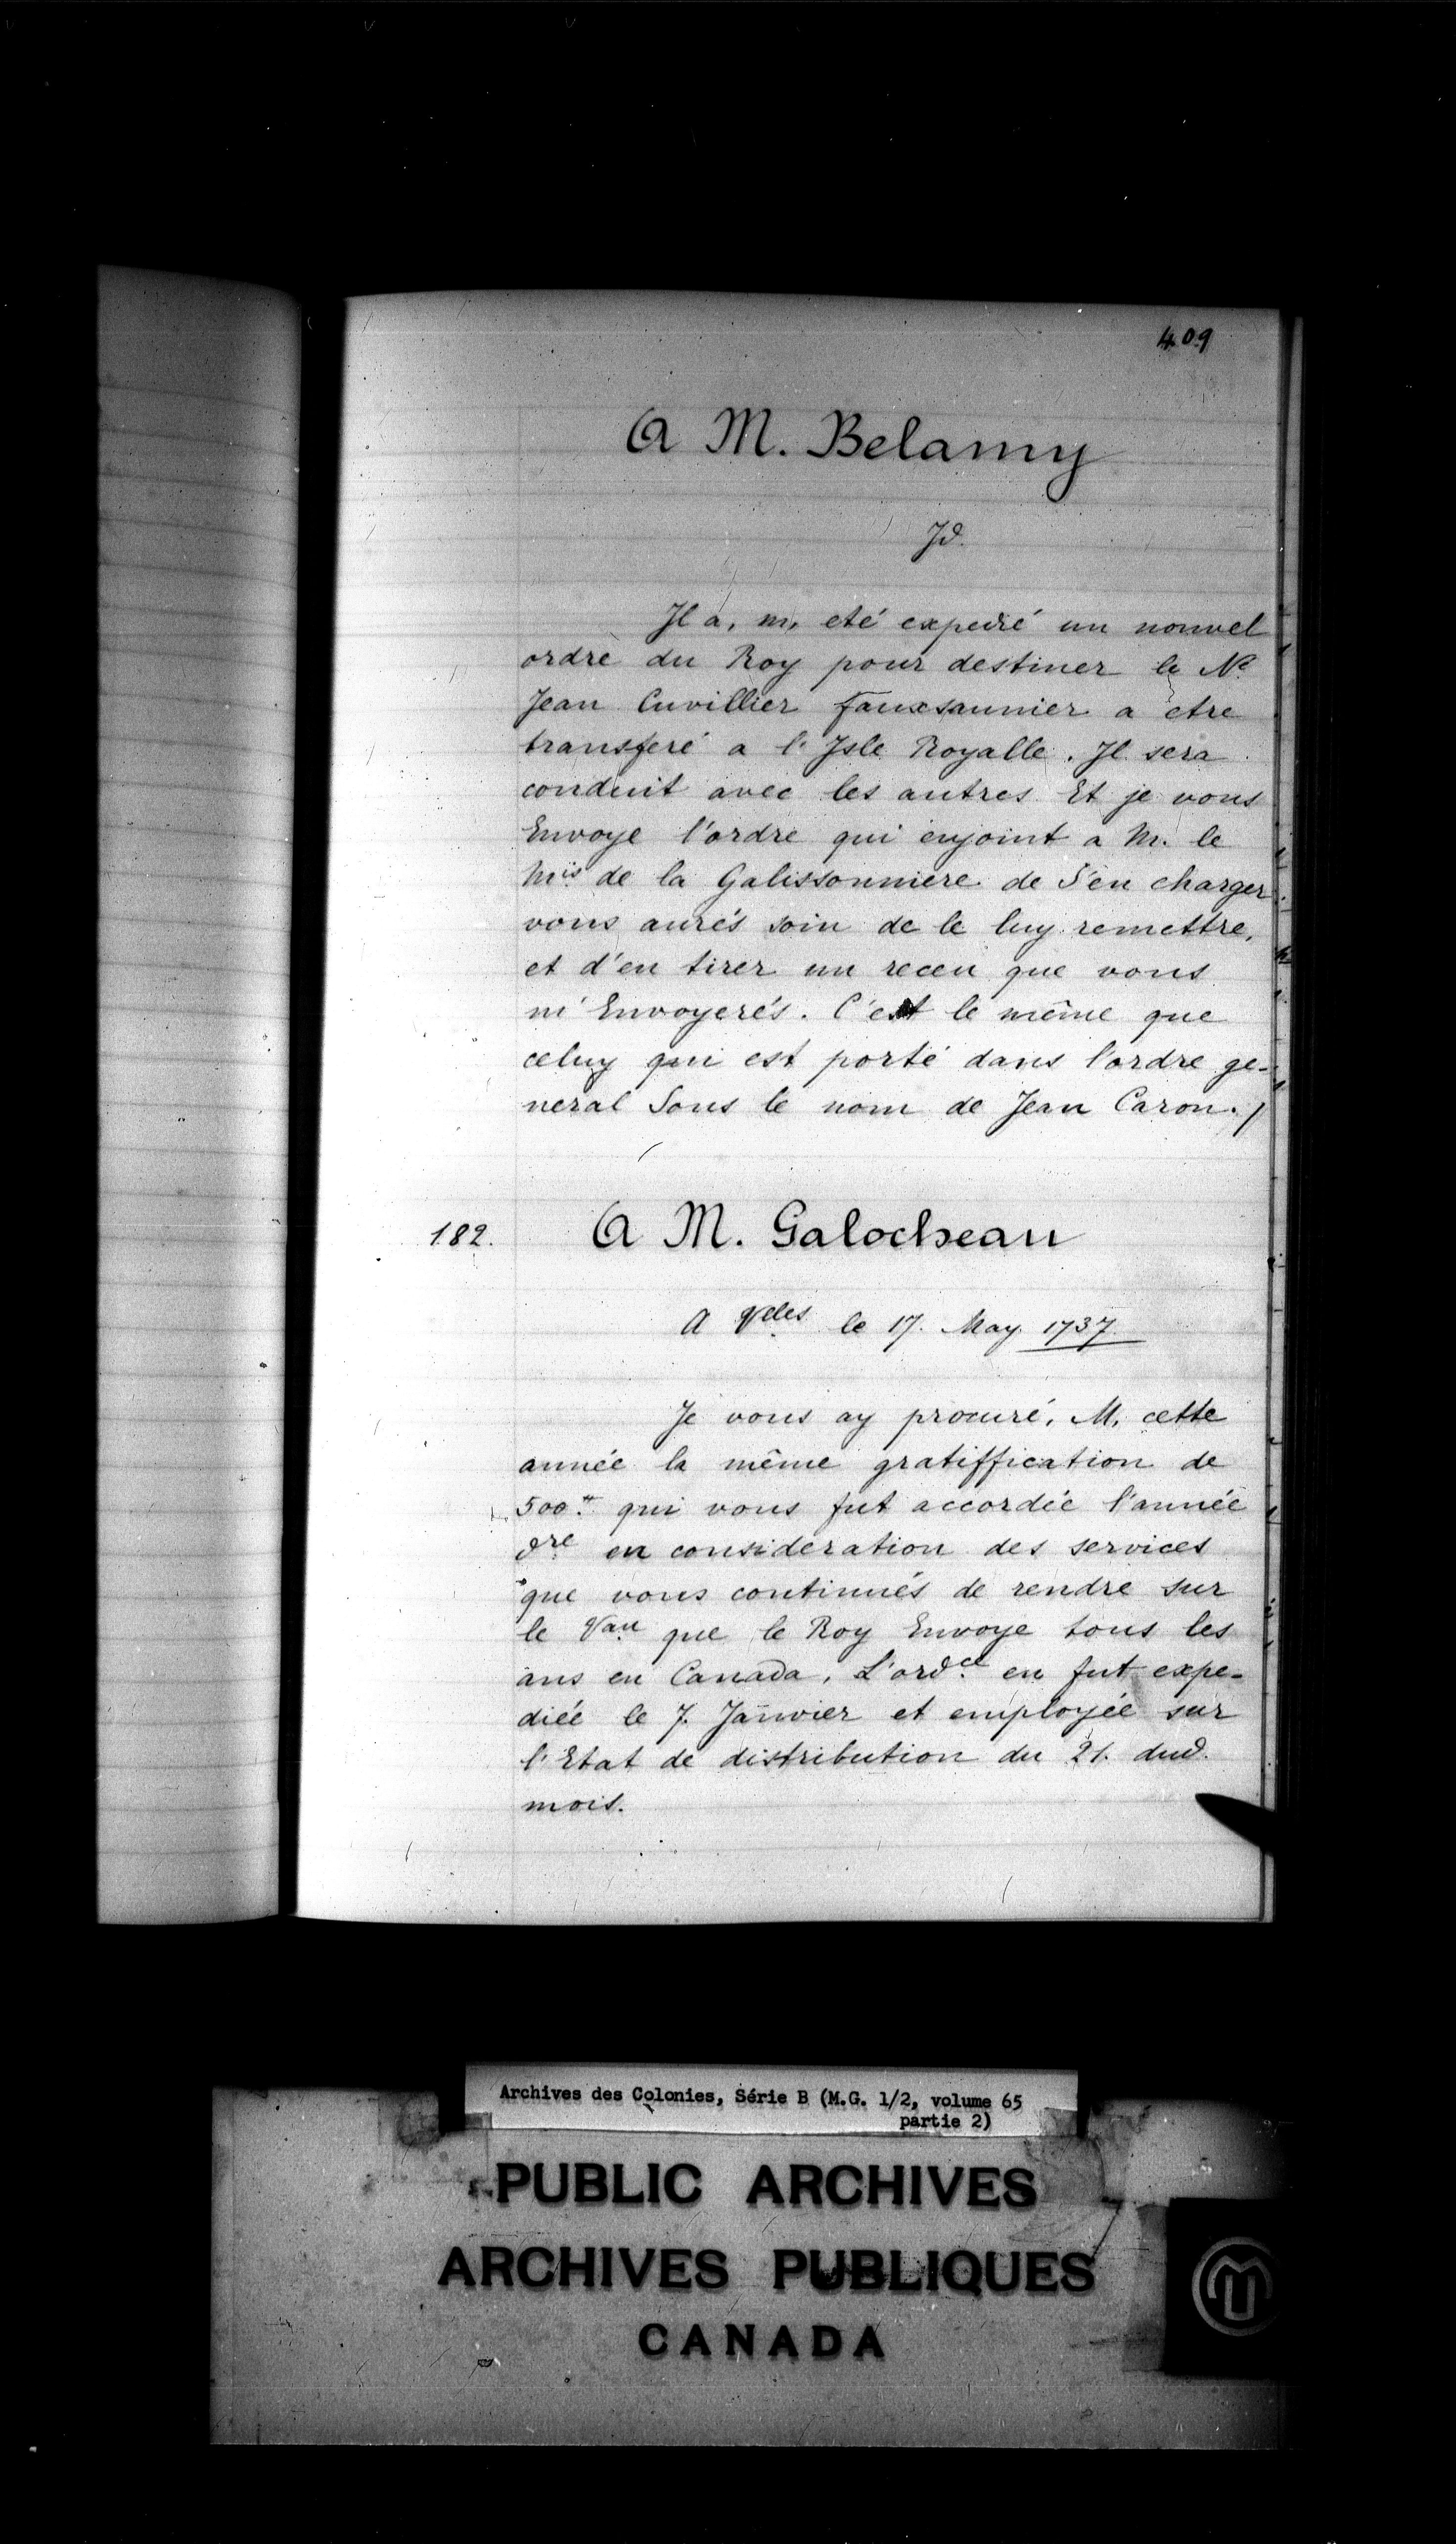 409
A M. Belamy
Jd.
Il a, m, eté expedié un nouvel
ordre du Roy pour destiner le Né
Jean Cuvillier fauxsaunier a etre
transferé a l'Isle Royalle. Il sera
conduit avec les autres Et je vous
Envoye l'ordre qui enjoint a M. le
Mis de la Galissonniere de S'en charger
vous aurés soin de le luy remettre,
et d'en tirer un receu que vous
m'Envoyerés. C'est le même que
celuy qui est porté dans l'ordre ge-
neral Sous le nom de Jean Caron./
182. A M. Galocheau
A Vlles le 17. May 1737
Je vous ay procuré, M, cette
année la même gratiffication de
500.tt qui vous fut accordée l'année
dre en consideration des services
que vous continués de rendre sur
le Vau que le Roy Envoye tous les
ans en Canada. L'ord.ce en fut expe-
diée le 7. Janvier et employée sur
l'Etat de distribution du 21. dud.
mois.
Archives des Colonies, Série B (M.G. 1/2, volume 65
partie 2)
PUBLIC ARCHIVES
ARCHIVES PUBLIQUES
CANADA